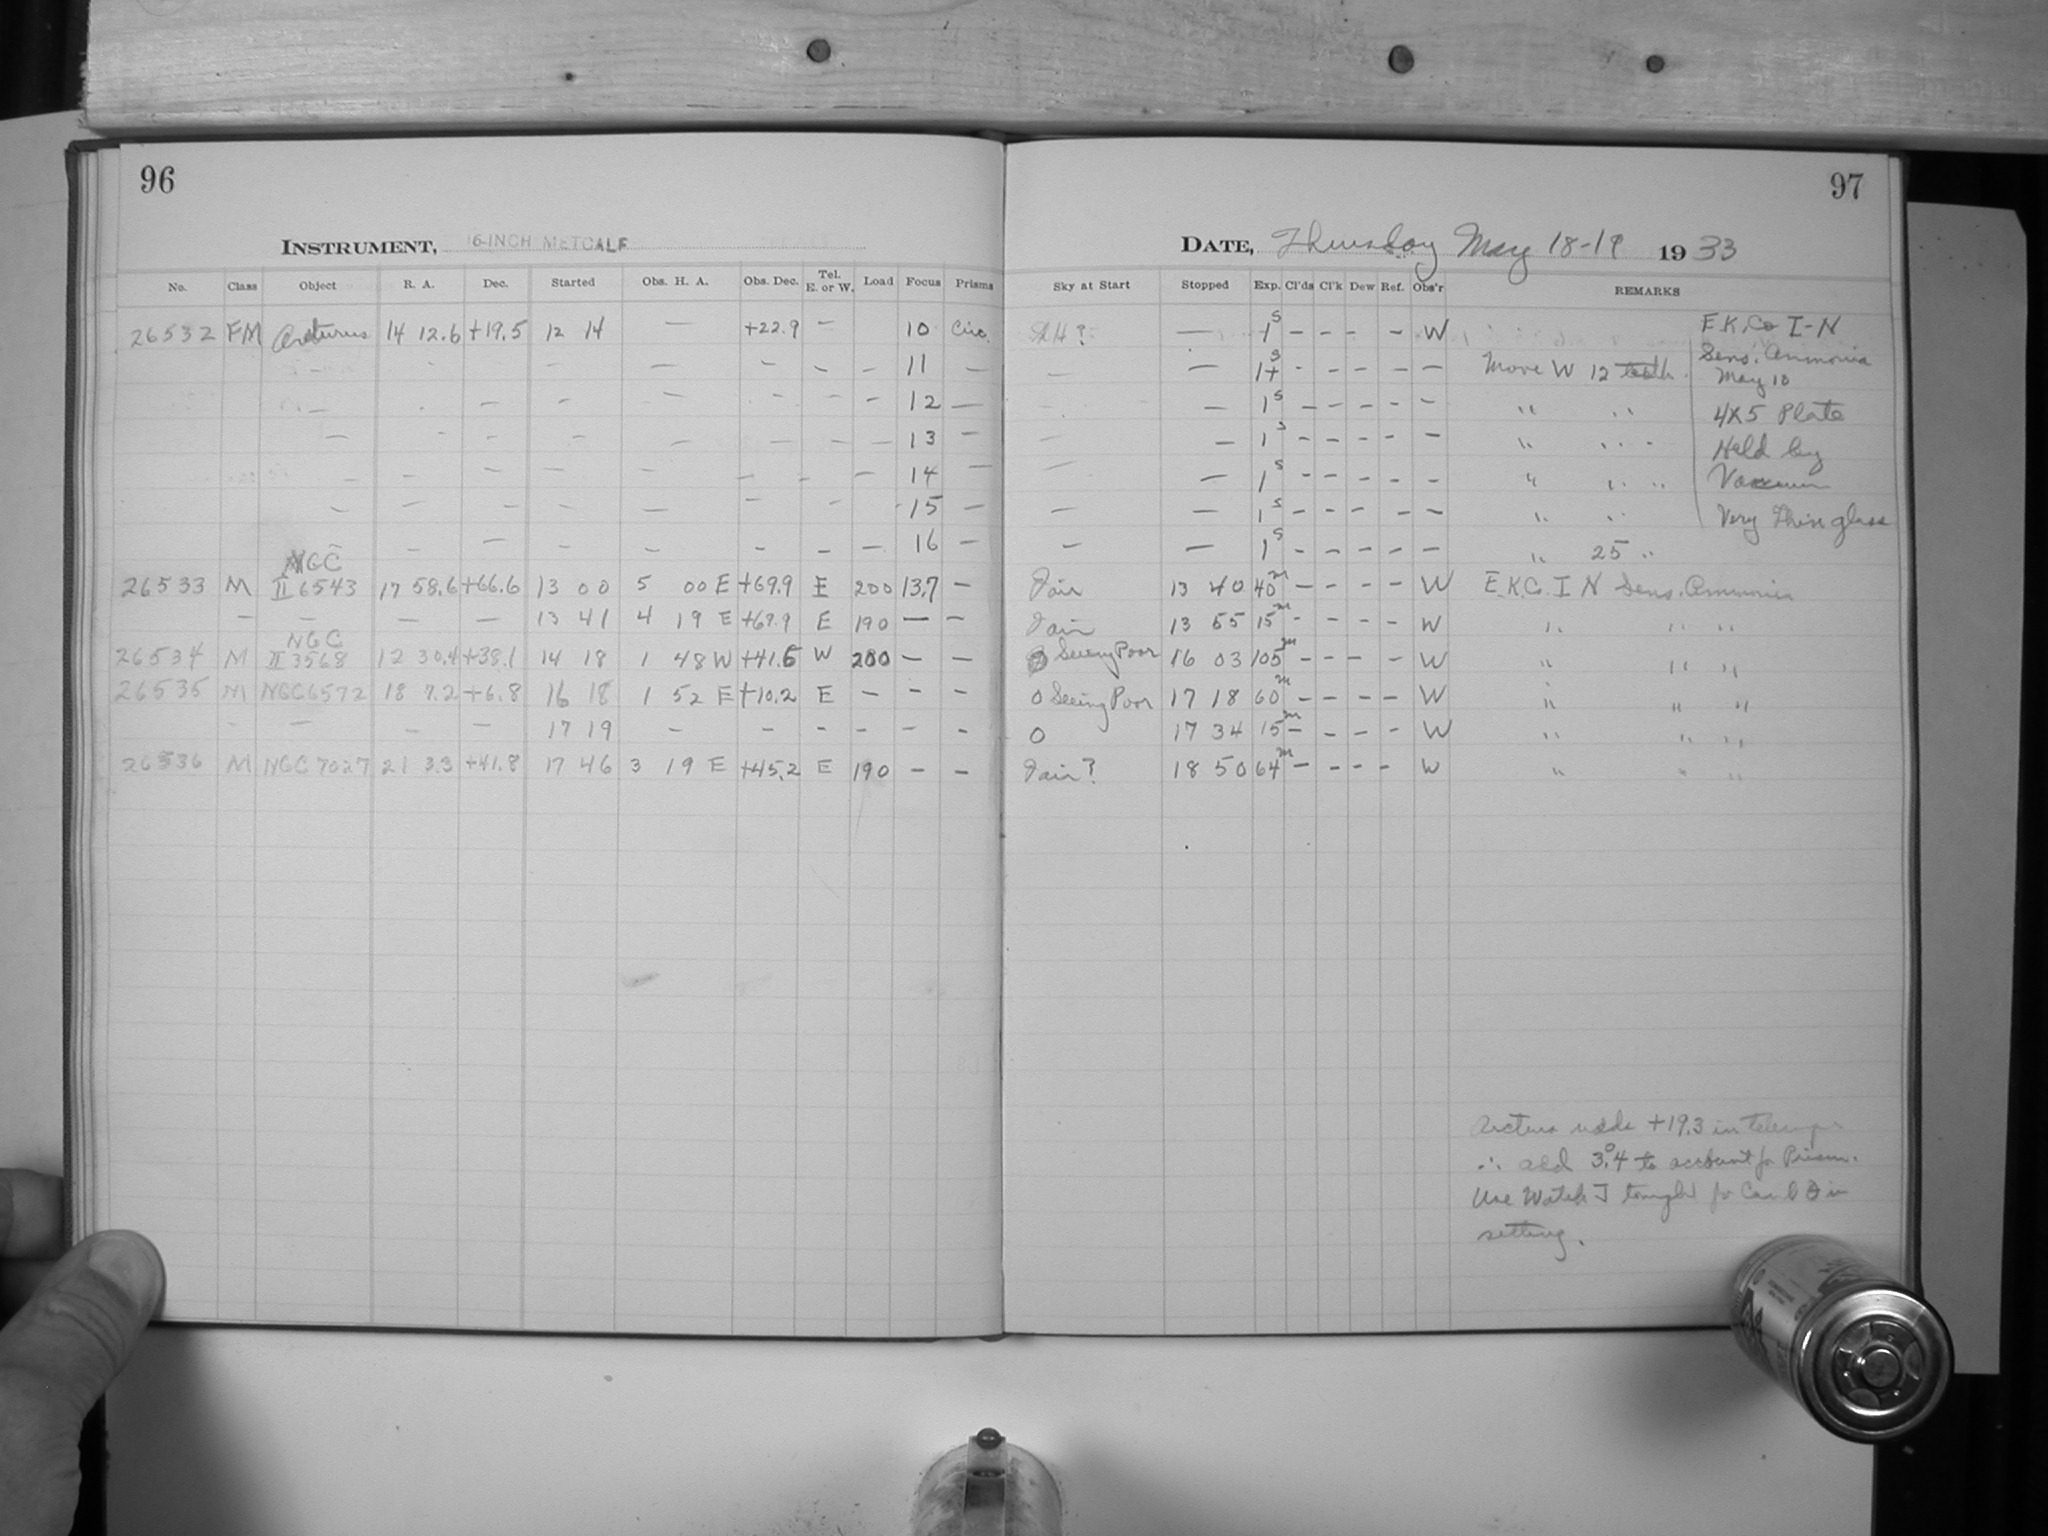 96
INSTRUMENT, 16-INCH METCALF
No. Class Object R. A. Dec. Started Obs. H. A. Obs. Dec. Tel. E. or W. Load Focus Prisms
26532 FM Arcturus 14 12.6 +19.5 12 14 — +22.9 — 10 Circ.
11 —
12 —
13 —
14 —
15 —
16 —
NGC
26533 M II 6543 17 58.6 +66.6 13 00 5 00 E +69.9 E 200 13.7 —
— — — — 13 41 4 19 E +69.9 E 190 — —
NGC
26534 M II 3568 12 30.4 +38.1 14 18 1 48 W +41.5 W 200 — —
26535 M NGC 6572 18 7.2 +6.8 16 18 1 52 E +10.2 E — — —
— — — — 17 19 — — — — — —
26536 M NGC 7027 21 3.3 +41.8 17 46 3 19 E +45.2 E 190 — —
97
DATE, Thursday May 18-19 1933
Sky at Start Stopped Exp. Cl'ds Cl'k Dew Ref. Obs'r REMARKS
— 1s — — — W E.K.Co I-N
— 1+s - - - — — Move W 12 teeth. Sens. Ammonia
May 18
— 1s — — — - — " " 4x5 Plate
— 1s - - - - — " " Held by
— 1s - - - - - " " Vacuum
— 1s - - - - — " " Very Thin glass
— — 1s - - - - — " 25 "
Fair 13 40 40m — - - - W E.K.Co. I N Sens. Ammonia
Fair 13 55 15m - - - - W " " "
Seeing Poor 16 03 105m - - — - W " " "
0 Seeing Poor 17 18 60m — - — - W " " "
0 17 34 15m — - - - W " " "
Fair? 18 50 64m — - - - W " " "
Arcturus +19.3 in
∴ add 3°.4 to account for Prism.
Use Watch J tonight for in
setting.